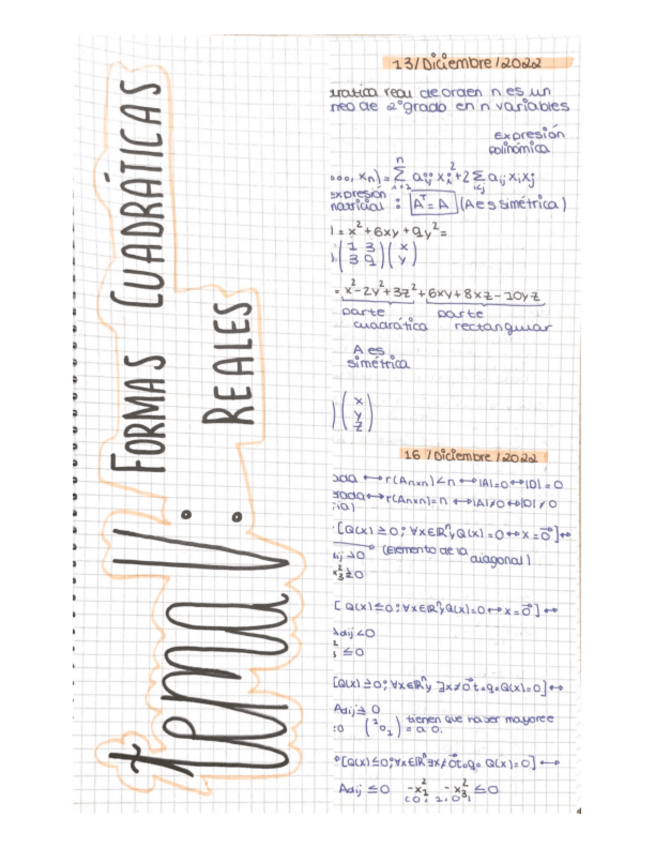 tema V:
FORMAS CUADRÁTICAS
REALES
13/Diciembre/2022
de orden n es un
de 2º grado en n variables
expresión
polinómica
xₙ) = Σ aᵢⱼ xᵢ² + 2 Σ aᵢⱼ xᵢ xⱼ
n
i<j
expresión
matricial : Aᵀ = A (A es simétrica)
= x² + 6xy + 9y² =
(1 3) (x)
(3 9) (y)
= x² - 2y² + 3z² + 6xy + 8xz - 10yz
parte parte
cuadrática rectangular
A es
simétrica
) (x
y
z)
16 / Diciembre / 2022
↔ r(Anxn) < n ↔ |A| = 0 ↔ |D| = 0
↔ r(Anxn) = n ↔ |A| ≠ 0 ↔ |D| ≠ 0
[Q(x) ≥ 0; ∀x∈ℝⁿ y Q(x) = 0 ↔ x = 0⃗] ↔
(Elemento de la
diagonal)
≥ 0
[Q(x) ≤ 0; ∀x∈ℝⁿ y Q(x) = 0 ↔ x = 0⃗] ↔
dij < 0
≤ 0
[Q(x) ≥ 0; ∀x∈ℝⁿ y ∃x ≠ 0⃗ t.q. Q(x) = 0] ↔
Adij ≥ 0
tienen que haber mayores
= a 0.
[Q(x) ≤ 0; ∀x∈ℝⁿ ∃x ≠ 0⃗ t.q. Q(x) = 0] ↔
Adij ≤ 0 -x₁² - x₃² ≤ 0